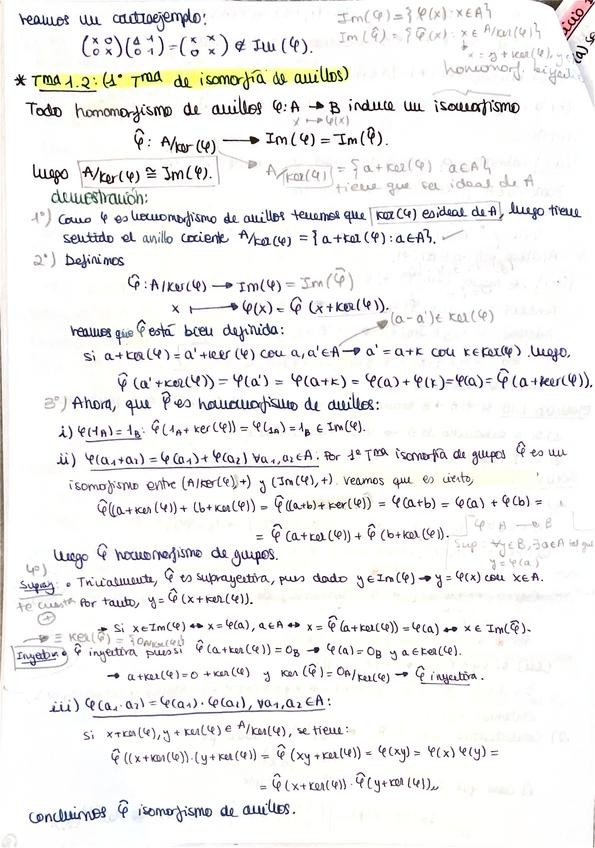 veamos un contraejemplo:
(x 0 / 0 x)(1 1 / 0 1) = (x x / 0 x) ∉ Im(φ).
Im(φ) = {φ(x) : x ∈ A}
Im(φ̂) = {φ̂(x) : x ∈ A/Ker(φ)}
* Tma 1.2: (1º Tma de isomorfía de anillos)
Todo homomorfismo de anillos φ: A → B induce un isomorfismo
x ↦ φ(x)
φ̂ : A/Ker(φ) → Im(φ) = Im(φ̂).
luego A/Ker(φ) ≅ Im(φ).
A/Ker(φ) = {a + Ker(φ) : a ∈ A}
tiene que ser ideal de A
demostración:
1º) Como φ es homomorfismo de anillos tenemos que Ker(φ) es ideal de A, luego tiene
sentido el anillo cociente A/Ker(φ) = {a + Ker(φ) : a ∈ A}.
2º) Definimos
φ̂ : A/Ker(φ) → Im(φ) = Im(φ̂)
x ↦ φ(x) = φ̂(x + Ker(φ)).
veamos que φ̂ está bien definida:
(a-a') ∈ Ker(φ)
si a + Ker(φ) = a' + Ker(φ) con a, a' ∈ A → a' = a + k con k ∈ Ker(φ). luego,
φ̂(a' + Ker(φ)) = φ(a') = φ(a+k) = φ(a) + φ(k) = φ(a) = φ̂(a + Ker(φ)).
3º) Ahora, que φ̂ es homomorfismo de anillos:
i) φ(1_A) = 1_B : φ̂(1_A + Ker(φ)) = φ(1_A) = 1_B ∈ Im(φ).
ii) φ(a₁+a₂) = φ(a₁) + φ(a₂) ∀a₁, a₂ ∈ A: Por 1º Tma isomorfía de grupos φ̂ es un
isomorfismo entre (A/Ker(φ), +) y (Im(φ), +). veamos que es cierto,
φ̂((a + Ker(φ)) + (b + Ker(φ))) = φ̂((a+b) + Ker(φ)) = φ(a+b) = φ(a) + φ(b) =
= φ̂(a + Ker(φ)) + φ̂(b + Ker(φ)).
φ: A → B
Sup: ∀y ∈ B, ∃a ∈ A tal que
y = φ(a)
luego φ̂ homomorfismo de grupos.
4º)
Supray: • Trivialmente, φ̂ es suprayectiva, pues dado y ∈ Im(φ) → y = φ(x) con x ∈ A.
Por tanto, y = φ̂(x + Ker(φ)).
→ Si x ∈ Im(φ) ↔ x = φ(a), a ∈ A ↔ x = φ̂(a + Ker(φ)) = φ(a) ↔ x ∈ Im(φ̂).
≡ Ker(φ̂) = {0_A/Ker(φ)}
Inyectiva • φ̂ inyectiva pues si φ̂(a + Ker(φ)) = 0_B → φ(a) = 0_B y a ∈ Ker(φ).
→ a + Ker(φ) = 0 + Ker(φ) y Ker(φ̂) = 0_A/Ker(φ) → φ̂ inyectiva.
iii) φ(a₁·a₂) = φ(a₁)·φ(a₂), ∀a₁, a₂ ∈ A:
Si x + Ker(φ), y + Ker(φ) ∈ A/Ker(φ), se tiene:
φ̂((x + Ker(φ))·(y + Ker(φ))) = φ̂(xy + Ker(φ)) = φ(xy) = φ(x) φ(y) =
= φ̂(x + Ker(φ))·φ̂(y + Ker(φ)),,
Concluimos φ̂ isomorfismo de anillos.